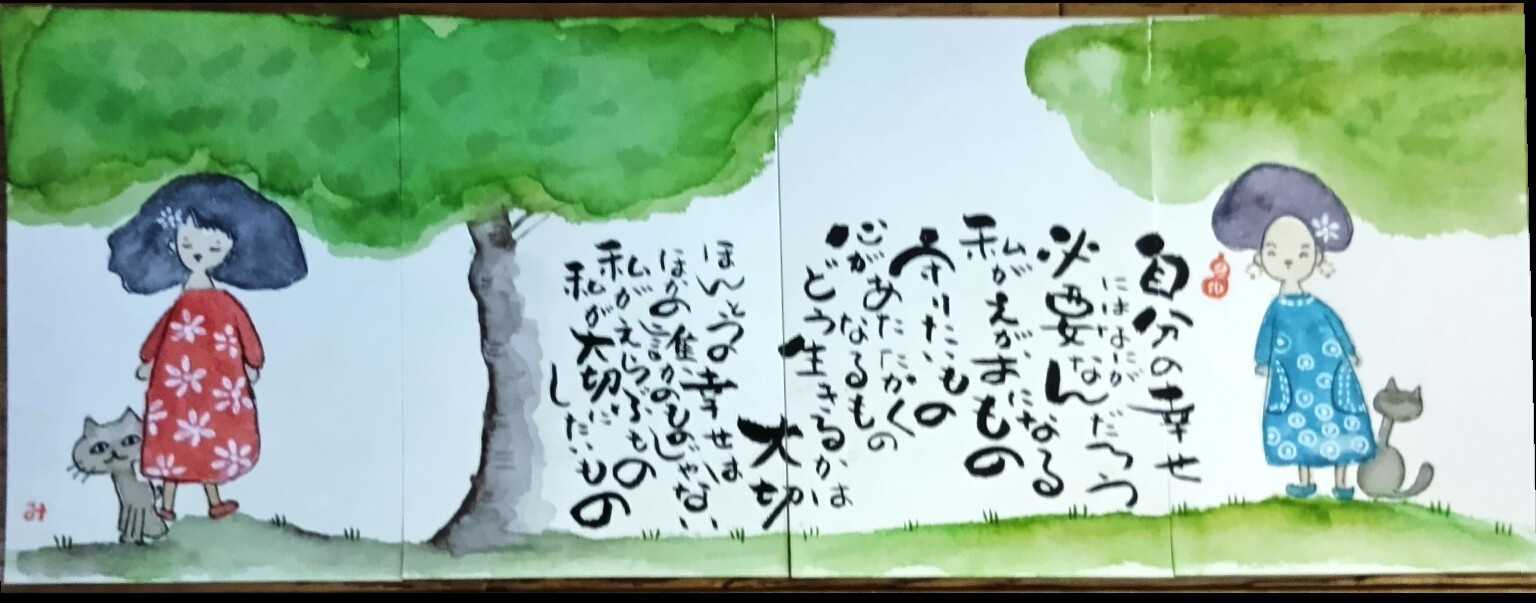 自分の幸せ
にはなにが
必要なんだろう
私がえがおになる
もの
守りたいもの
心があたたかく
なるもの
どう生きるかは
大切
ほんとうの幸せは
ほかの誰かのものじゃない
私がえらぶもの
私が大切に
したいもの
み